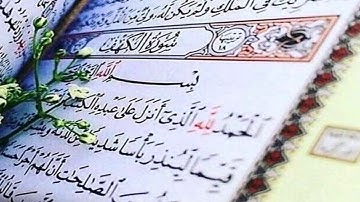 فِي الْمُلْكِ وَلَمْ يَكُن لَّهُ وَلِيٌّ مِّنَ
سُورَةُ الْكَهْفِ
بِسْمِ اللَّهِ
الْحَمْدُ لِلَّهِ الَّذِي أَنزَلَ عَلَىٰ عَبْدِهِ الْكِتَابَ
قَيِّمًا لِّيُنذِرَ بَأْسًا شَدِيدًا مِّن لَّدُنْهُ
الصَّالِحَاتِ أَنَّ لَهُمْ أَجْرًا